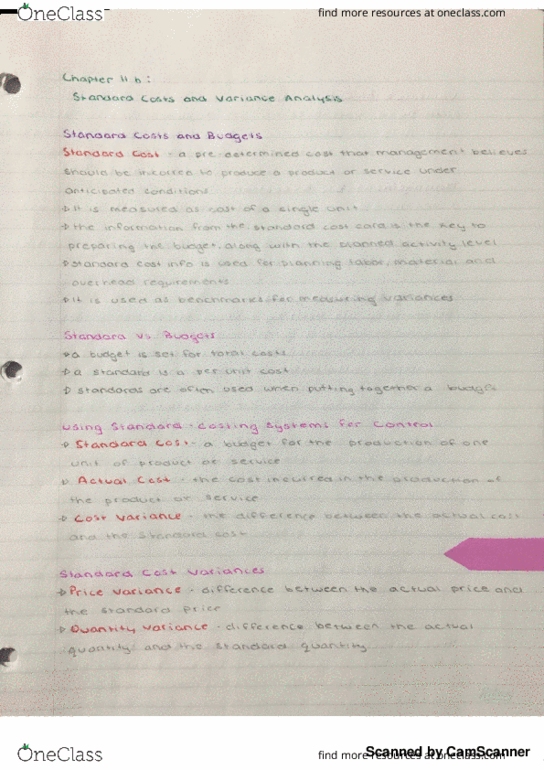 OneClass
find more resources at oneclass.com
Chapter 11 b:
Standard Costs and Variance Analysis
Standard Costs and Budgets
Standard Cost - a pre-determined cost that management believes
should be incurred to produce a product or service under
anticipated conditions
It is measured as cost of a single unit
the information from the standard cost card is the key to
preparing the budget, along with the planned activity level
standard cost info is used for planning labor, material and
overhead requirements
It is used as benchmarks for measuring variances
Standard vs Budgets
a budget is set for total costs
a standard is a per unit cost
standards are often used when putting together a budget
Using Standard-Costing Systems for Control
Standard Cost - a budget for the production of one
unit of product or service
Actual Cost - the cost incurred in the production of
the product or service
Cost Variance - the difference between the actual cost
and the standard cost
Standard Cost Variances
Price Variance - difference between the actual price and
the standard price
Quantity Variance - difference between the actual
quantity and the standard quantity
OneClass
find more resources at oneclass.com
Scanned by CamScanner